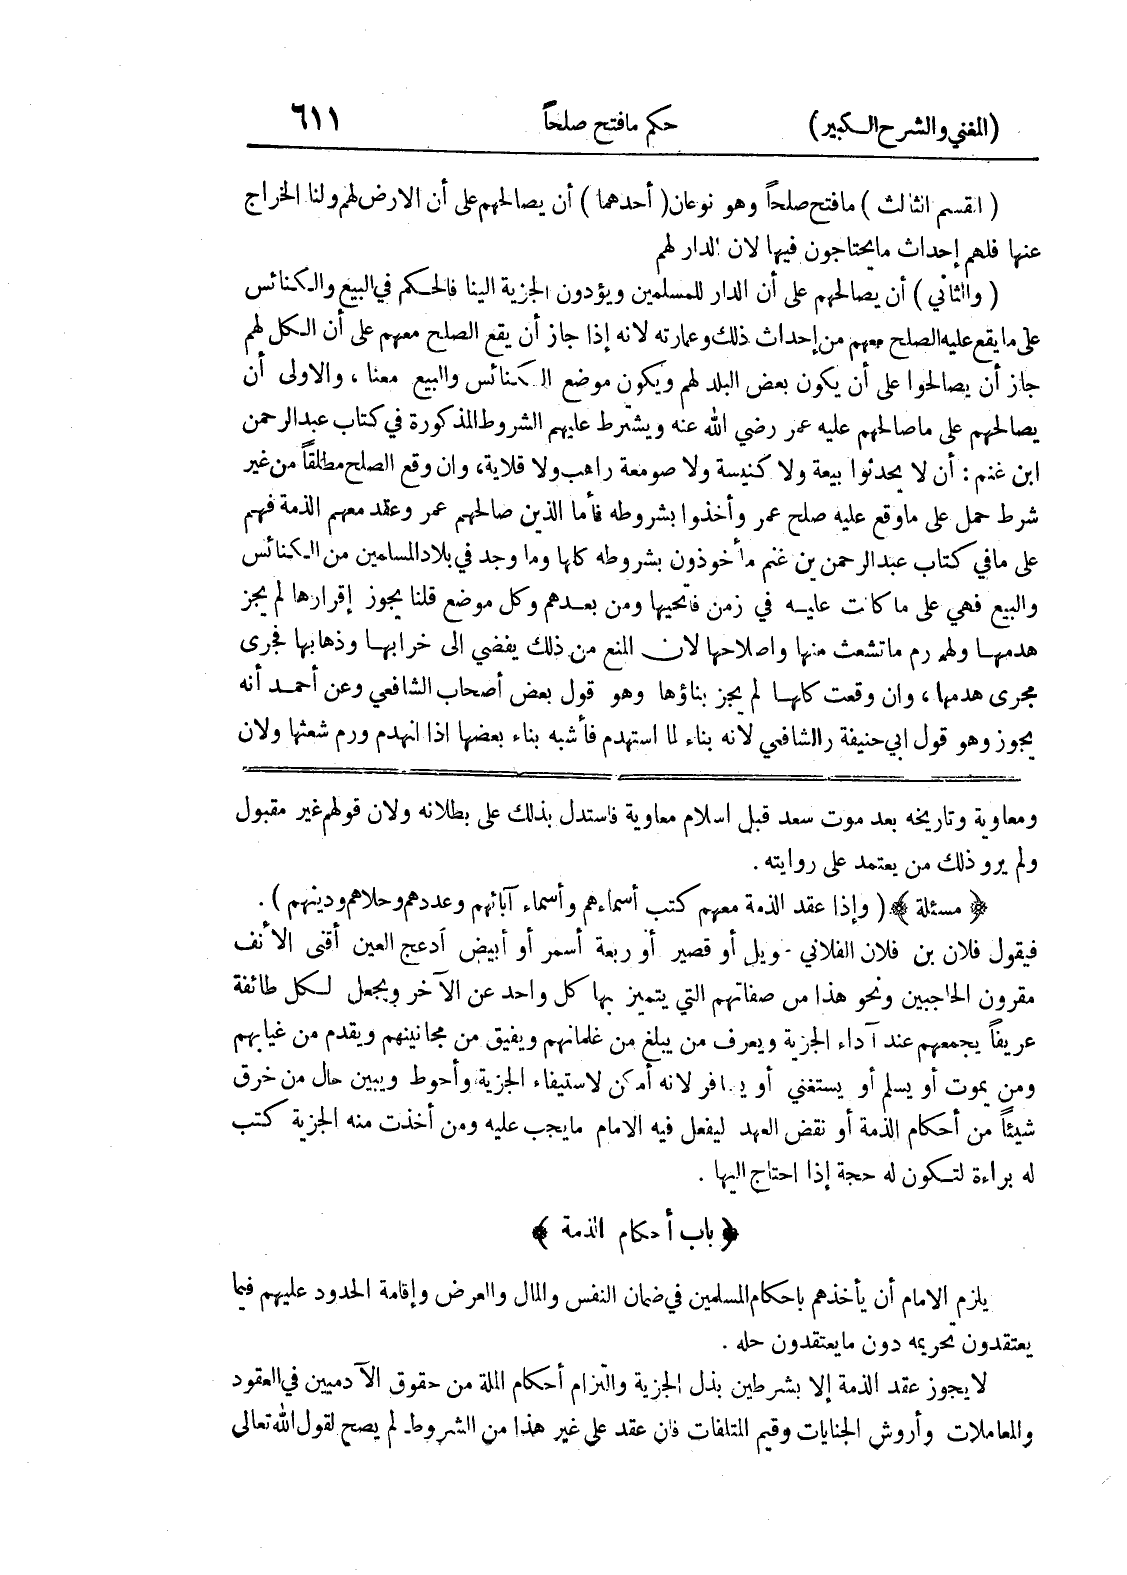 (المغني والشرح الكبير) حكم مافتح صلحاً ٦١١
( القسم الثالث ) مافتح صلحاً وهو نوعان ( أحدهما ) أن يصالحهم على أن الارض لهم ولنا الخراج
عنها فلهم إحداث مايحتاجون فيها لان الدار لهم
( والثاني ) أن يصالحهم على أن الدار للمسلمين ويؤدون الجزية الينا فالحكم في البيع والكنائس
على مايقع عليه الصلح معهم من إحداث ذلك وعمارته لانه إذا جاز أن يقع الصلح معهم على أن الكل لهم
جاز أن يصالحوا على أن يكون بعض البلد لهم ويكون موضع الكنائس والبيع معنا ، والاولى أن
يصالحهم على ماصالحهم عليه عمر رضي الله عنه ويشترط عليهم الشروط المذكورة في كتاب عبدالرحمن
ابن غنم : أن لا يحدثوا بيعة ولا كنيسة ولا صومعة راهب ولا قلاية، وان وقع الصلح مطلقاً من غير
شرط حمل على ماوقع عليه صلح عمر وأخذوا بشروطه فأما الذين صالحهم عمر وعقد معهم الذمة فهم
على مافي كتاب عبدالرحمن بن غنم مأخوذون بشروطه كلها وما وجد في بلاد المسلمين من الكنائس
والبيع فهي على ما كانت عليه في زمن فاتحيها ومن بعدهم وكل موضع قلنا يجوز إقرارها لم يجز
هدمها ولهم رم ماتشعث منها واصلاحها لان المنع من ذلك يفضي الى خرابها وذهابها فجرى
مجرى هدمها ، وان وقعت كلها لم يجز بناؤها وهو قول بعض أصحاب الشافعي وعن أحمد أنه
يجوز وهو قول ابي حنيفة والشافعي لانه بناء لما استهدم فأشبه بناء بعضها اذا انهدم ورم شعثها ولان
ومعاوية وتاريخه بعد موت سعد قبل اسلام معاوية فاستدل بذلك على بطلانه ولان قولهم غير مقبول
ولم يرو ذلك من يعتمد على روايته .
﴿ مسئلة ﴾ ( وإذا عقد الذمة معهم كتب أسماءهم وأسماء آبائهم وعددهم وحلاهم ودينهم ) .
فيقول فلان بن فلان الفلاني طويل أو قصير أو ربعة أسمر أو أبيض أدعج العين أقنى الأنف
مقرون الحاجبين ونحو هذا من صفاتهم التي يتميز بها كل واحد عن الآخر ويجعل لكل طائفة
عريفاً يجمعهم عند آداء الجزية ويعرف من يبلغ من غلمانهم ويفيق من مجانينهم ويقدم من غيابهم
ومن يموت أو يسلم أو يستغني أو يسافر لانه أمكن لاستيفاء الجزية وأحوط ويبين حال من خرق
شيئاً من أحكام الذمة أو نقض العهد ليفعل فيه الامام مايجب عليه ومن أخذت منه الجزية كتب
له براءة لتكون له حجة إذا احتاج اليها .
﴿ باب أحكام الذمة ﴾
يلزم الامام أن يأخذهم باحكام المسلمين في ضمان النفس والمال والعرض وإقامة الحدود عليهم فيما
يعتقدون تحريمه دون مايعتقدون حله .
لايجوز عقد الذمة إلا بشرطين بذل الجزية والتزام أحكام الملة من حقوق الآدميين في العقود
والمعاملات وأروش الجنايات وقيم المتلفات فان عقد على غير هذا من الشروط لم يصح لقول الله تعالى